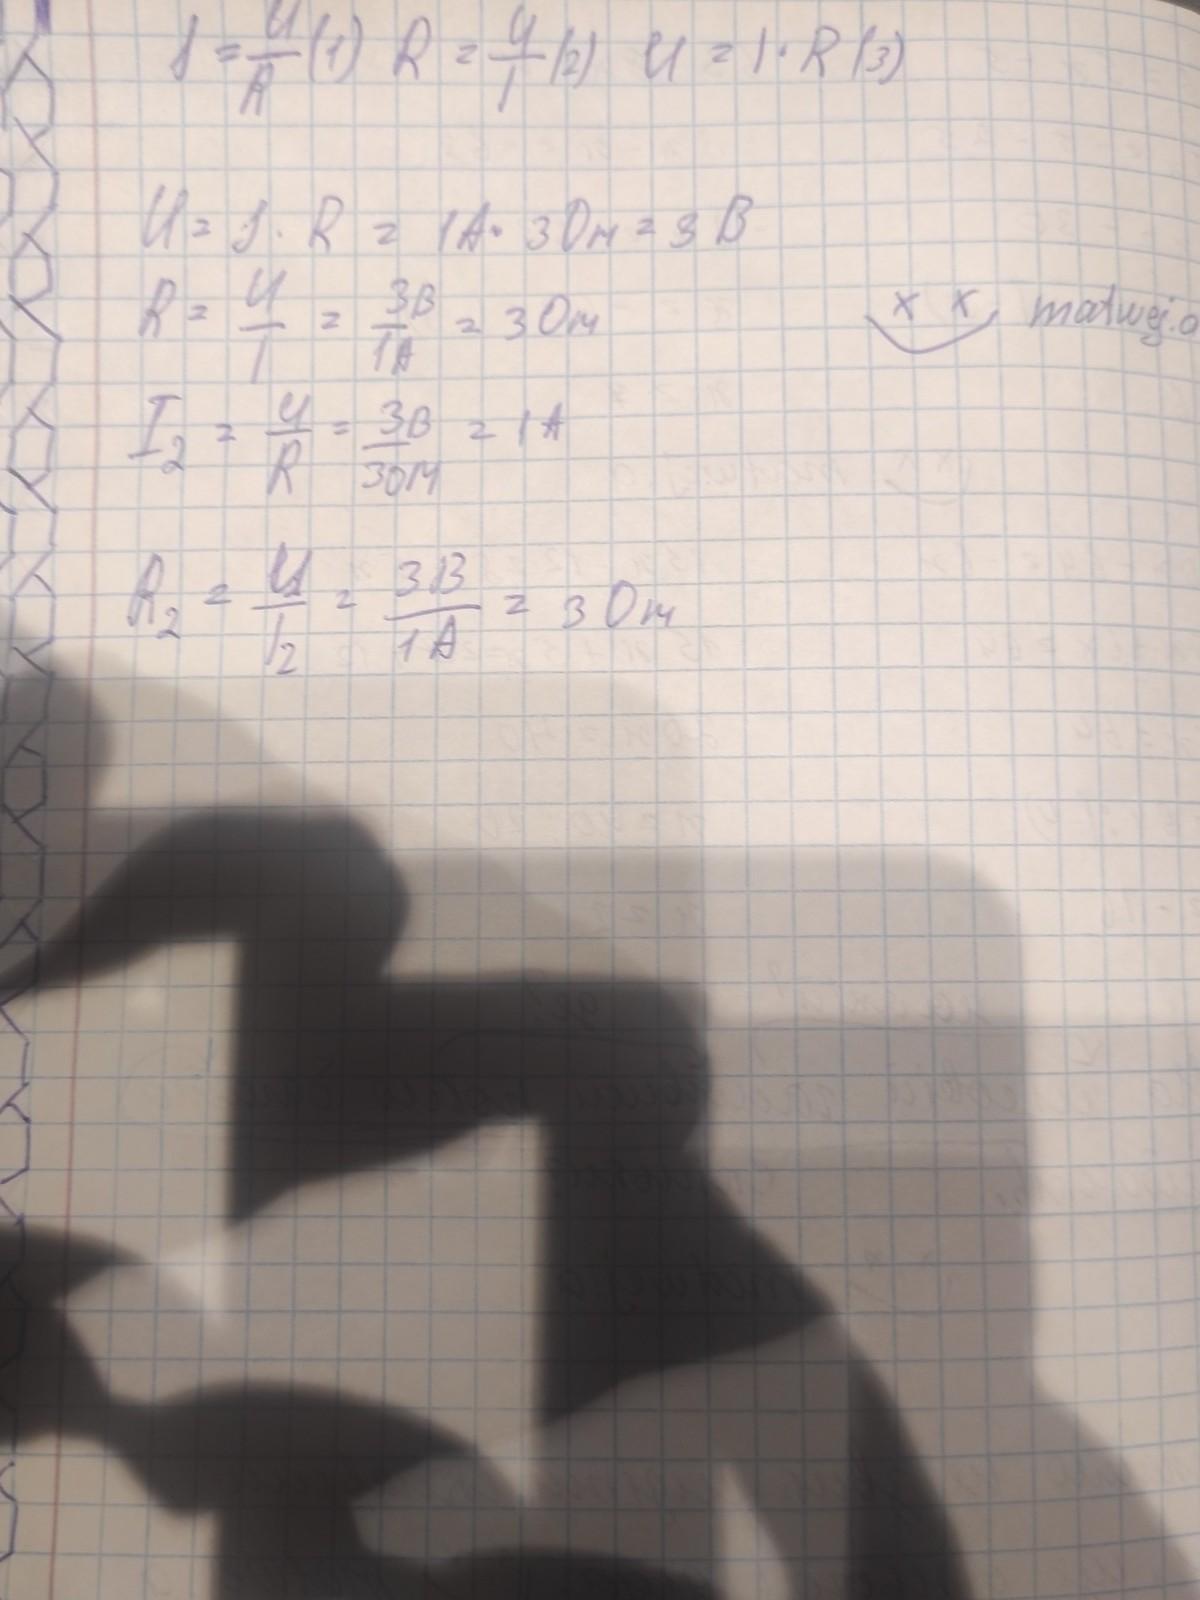 I = U/R (1) R = U/I (2) U = I · R (3)
U = I · R = 1А · 3 Ом = 3 В
R = U/I = 3В/1А = 3 Ом
matwej.o
I₂ = U/R = 3В/3Ом = 1А
R₂ = U/I₂ = 3В/1А = 3 Ом